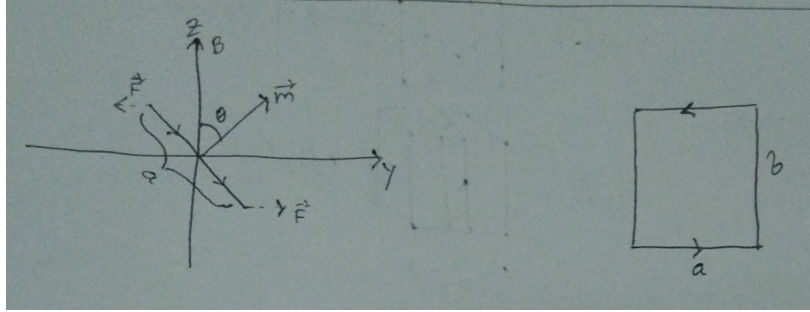 Z
B
F
m
θ
a
y
F
b
a